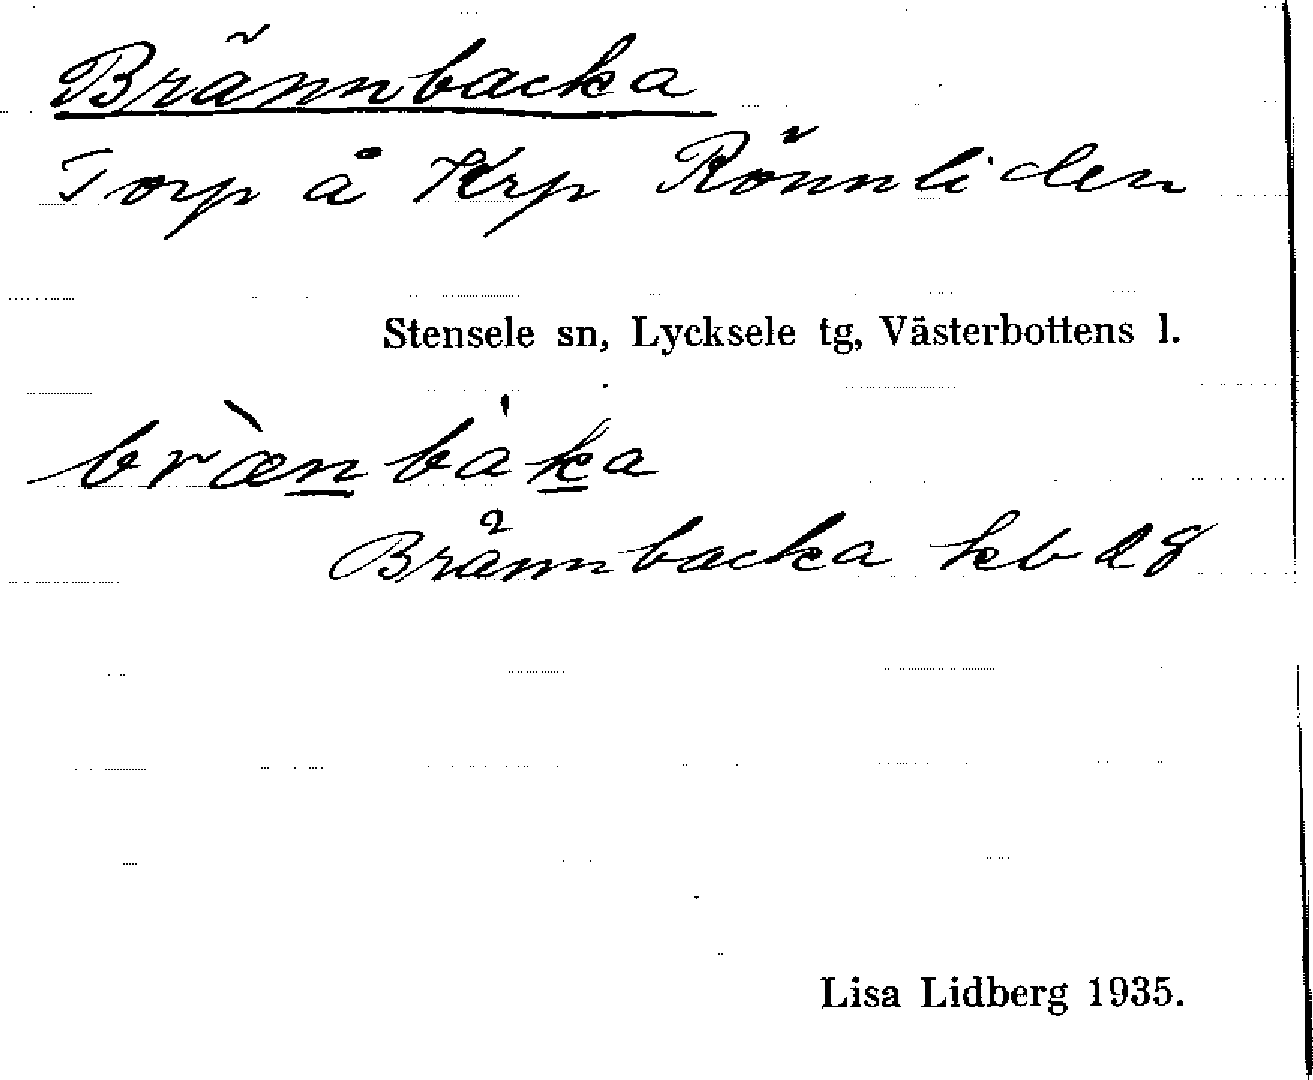 Brännbacka
Torp å Krp Rönnliden
Stensele sn, Lycksele tg, Västerbottens l.
bræ̀n̲bák̲a
Brännbacka kb dg
Lisa Lidberg 1935.